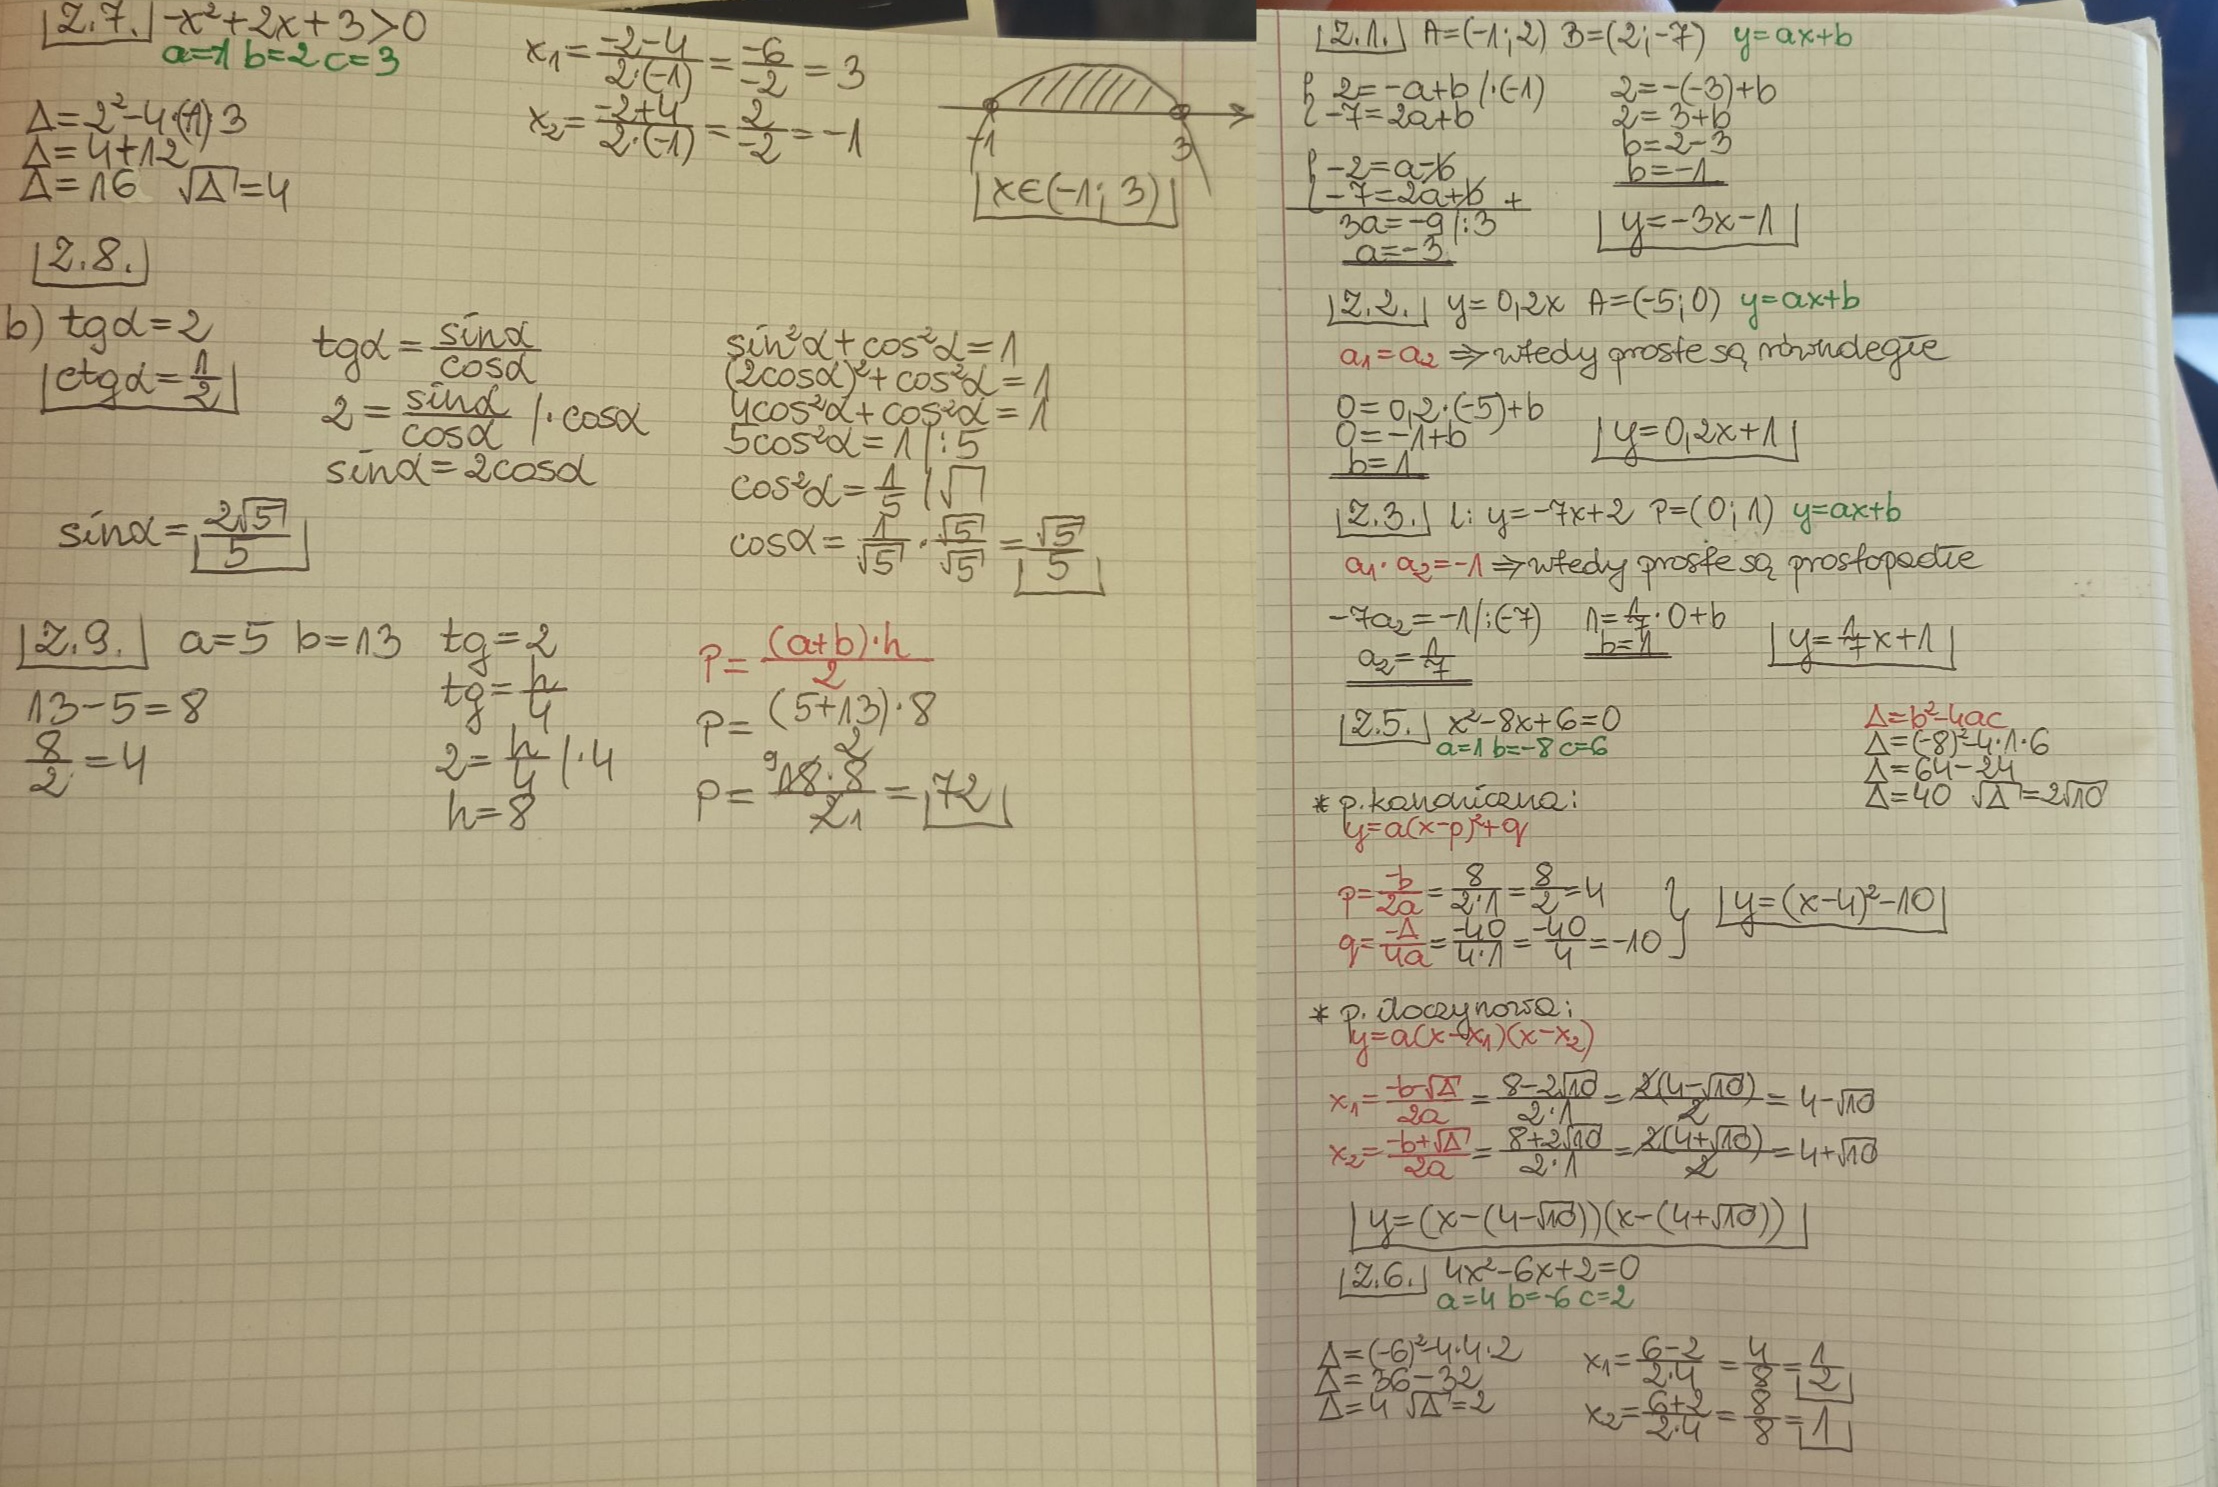 Z.7. -x²+2x+3>0
a=-1 b=2 c=3
Δ=2²-4·(-1)·3
Δ=4+12
Δ=16 √Δ=4
x₁=\frac{-2-4}{2·(-1)}=\frac{-6}{-2}=3
x₂=\frac{-2+4}{2·(-1)}=\frac{2}{-2}=-1
-1 3
x∈(-1; 3)
Z.8.
b) tgα=2
ctgα=\frac{1}{2}
tgα=\frac{sinα}{cosα}
2=\frac{sinα}{cosα} /·cosα
sinα=2cosα
sin²α+cos²α=1
(2cosα)²+cos²α=1
4cos²α+cos²α=1
5cos²α=1 /:5
cos²α=\frac{1}{5} /√
cosα=\frac{1}{√5}·\frac{√5}{√5}=\frac{√5}{5}
sinα=\frac{2√5}{5}
Z.9. a=5 b=13
13-5=8
\frac{8}{2}=4
tg=2
tg=\frac{h}{4}
2=\frac{h}{4} /·4
h=8
P=\frac{(a+b)·h}{2}
P=\frac{(5+13)·8}{2}
P=\frac{⁹18·8}{2₁}=72
Z.1. A=(-1;2) B=(2;-7) y=ax+b
{ 2=-a+b /·(-1)
{ -7=2a+b
{ -2=a-b
{ -7=2a+b +
3a=-9 /:3
a=-3
2=-(-3)+b
2=3+b
b=2-3
b=-1
y=-3x-1
Z.2. y=0,2x A=(-5;0) y=ax+b
a₁=a₂ ⇒ wtedy proste są równoległe
0=0,2·(-5)+b
0=-1+b
b=1
y=0,2x+1
Z.3. l: y=-7x+2 P=(0;1) y=ax+b
a₁·a₂=-1 ⇒ wtedy proste są prostopadłe
-7a₂=-1 /:(-7)
a₂=\frac{1}{7}
1=\frac{1}{7}·0+b
b=1
y=\frac{1}{7}x+1
Z.5. x²-8x+6=0
a=1 b=-8 c=6
Δ=b²-4ac
Δ=(-8)²-4·1·6
Δ=64-24
Δ=40 √Δ=2√10
* p. kanoniczna:
y=a(x-p)²+q
p=\frac{-b}{2a}=\frac{8}{2·1}=\frac{8}{2}=4
q=\frac{-Δ}{4a}=\frac{-40}{4·1}=\frac{-40}{4}=-10
} y=(x-4)²-10
* p. iloczynowa:
y=a(x-x₁)(x-x₂)
x₁=\frac{-b-√Δ}{2a}=\frac{8-2√10}{2·1}=\frac{2(4-√10)}{2}=4-√10
x₂=\frac{-b+√Δ}{2a}=\frac{8+2√10}{2·1}=\frac{2(4+√10)}{2}=4+√10
y=(x-(4-√10))(x-(4+√10))
Z.6. 4x²-6x+2=0
a=4 b=-6 c=2
Δ=(-6)²-4·4·2
Δ=36-32
Δ=4 √Δ=2
x₁=\frac{6-2}{2·4}=\frac{4}{8}=\frac{1}{2}
x₂=\frac{6+2}{2·4}=\frac{8}{8}=1